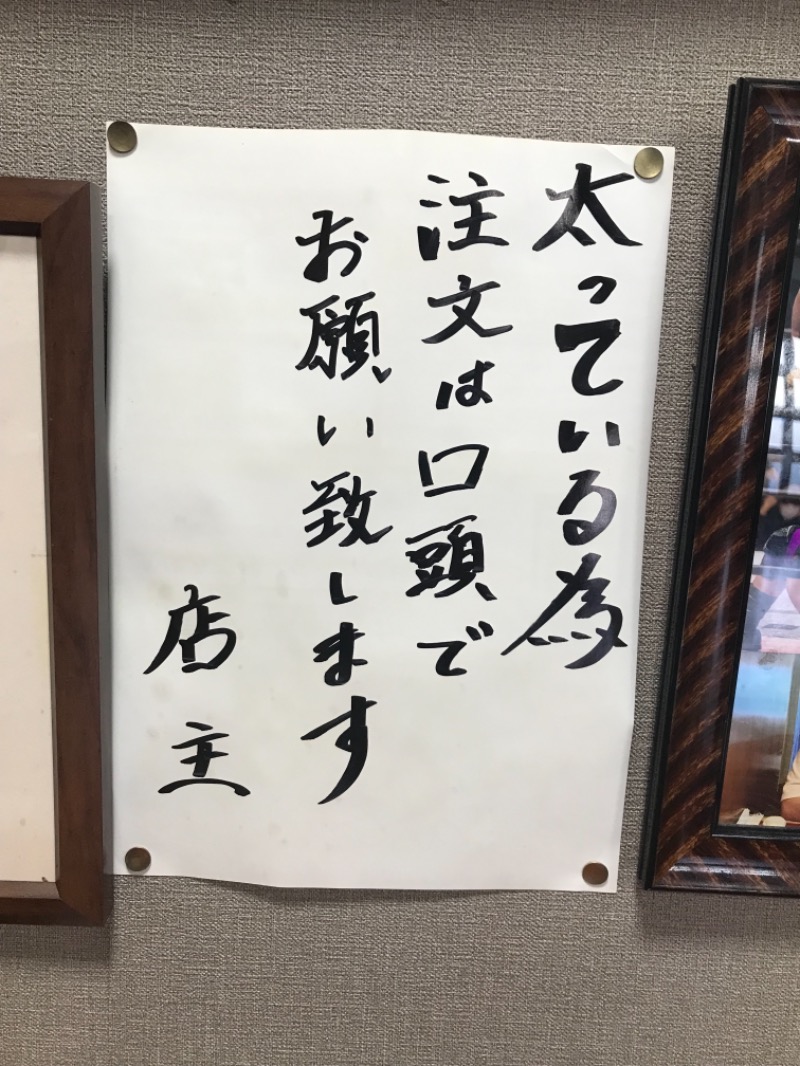 太っている為
注文は口頭で
お願い致します
店主